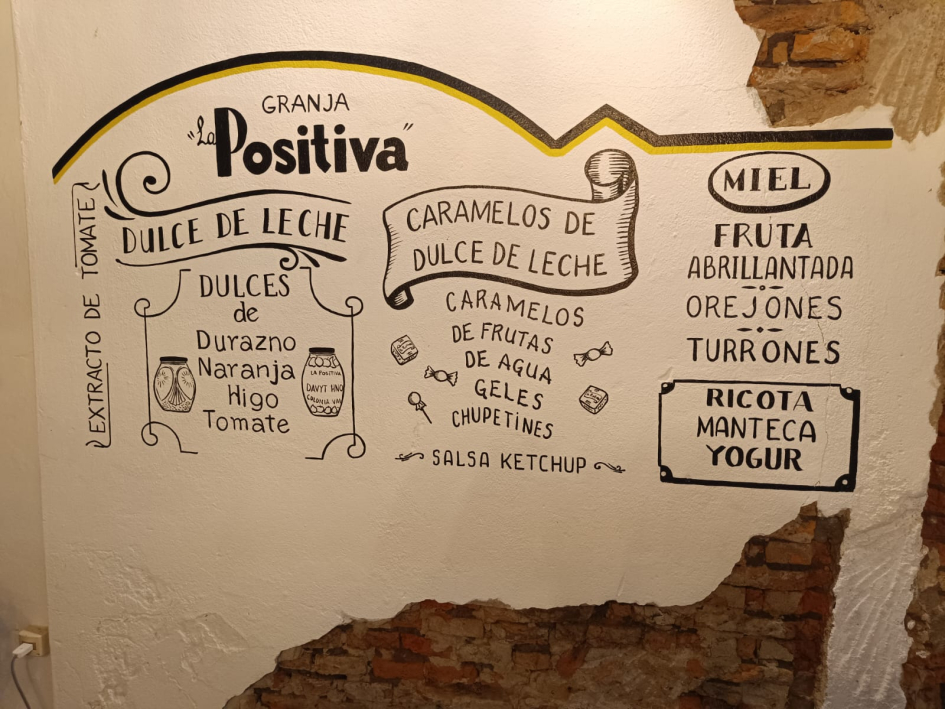 GRANJA
"La Positiva"
EXTRACTO DE TOMATE
DULCE DE LECHE
DULCES
de
Durazno
Naranja
Higo
Tomate
LA POSITIVA
DAVYT HNO
COLONIA VAL
CARAMELOS DE
DULCE DE LECHE
CARAMELOS
DE FRUTAS
DE AGUA
GELES
CHUPETINES
SALSA KETCHUP
MIEL
FRUTA
ABRILLANTADA
OREJONES
TURRONES
RICOTA
MANTECA
YOGUR